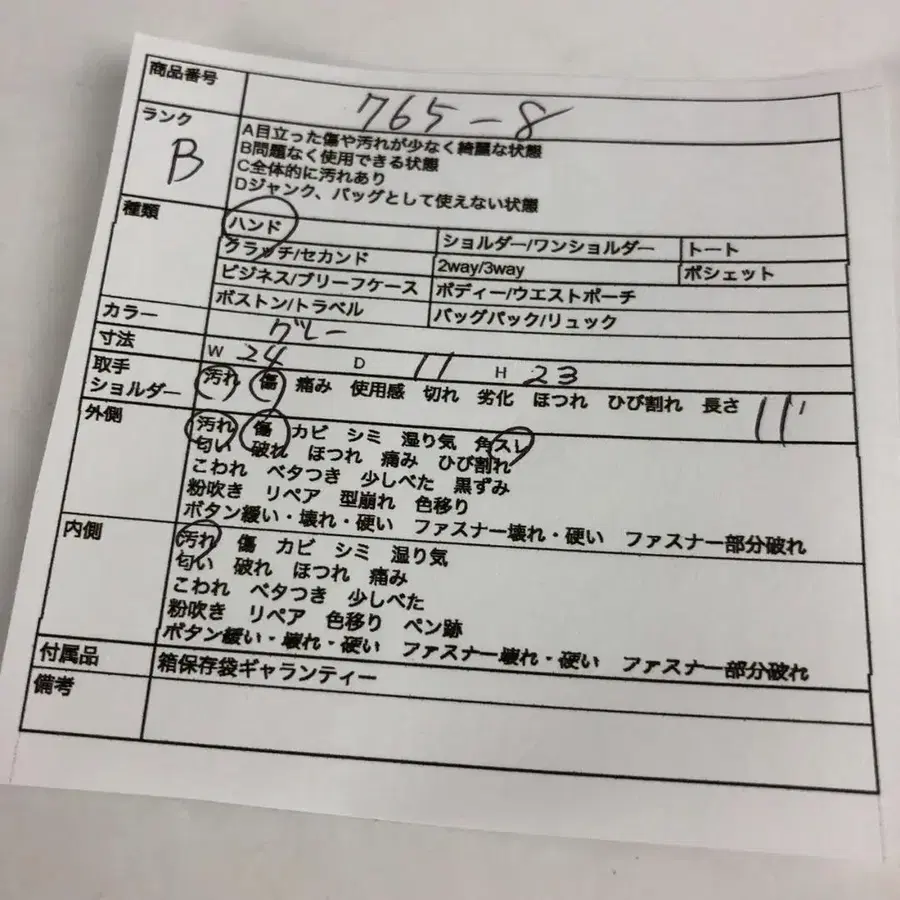 商品番号 765-8
ランク B
A目立った傷や汚れが少なく綺麗な状態
B問題なく使用できる状態
C全体的に汚れあり
Dジャンク、バッグとして使えない状態
種類 ハンド ショルダー/ワンショルダー トート
クラッチ/セカンド 2way/3way ポシェット
ビジネス/ブリーフケース ボディー/ウエストポーチ
ボストン/トラベル バックパック/リュック
カラー グレー
寸法 W 24 D 11 H 23
取手 汚れ 傷 痛み 使用感 切れ 劣化 ほつれ ひび割れ 長さ 11
ショルダー
外側 汚れ 傷 カビ シミ 湿り気 角スレ
匂い 破れ ほつれ 痛み ひび割れ
こわれ ベタつき 少しべた 黒ずみ
粉吹き リペア 型崩れ 色移り
ボタン緩い・壊れ・硬い ファスナー壊れ・硬い ファスナー部分破れ
内側 汚れ 傷 カビ シミ 湿り気
匂い 破れ ほつれ 痛み
こわれ ベタつき 少しべた
粉吹き リペア 色移り ペン跡
ボタン緩い・壊れ・硬い ファスナー壊れ・硬い ファスナー部分破れ
付属品 箱保存袋ギャランティー
備考